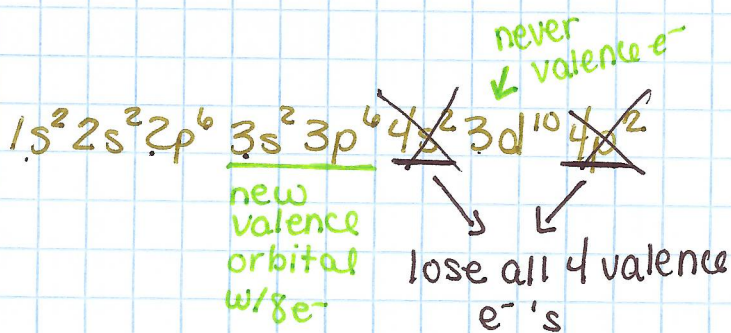 never
valence e⁻
1s² 2s² 2p⁶ 3s² 3p⁶ 4s² 3d¹⁰ 4p²
new
valence
orbital
w/8e⁻
lose all 4 valence
e⁻'s